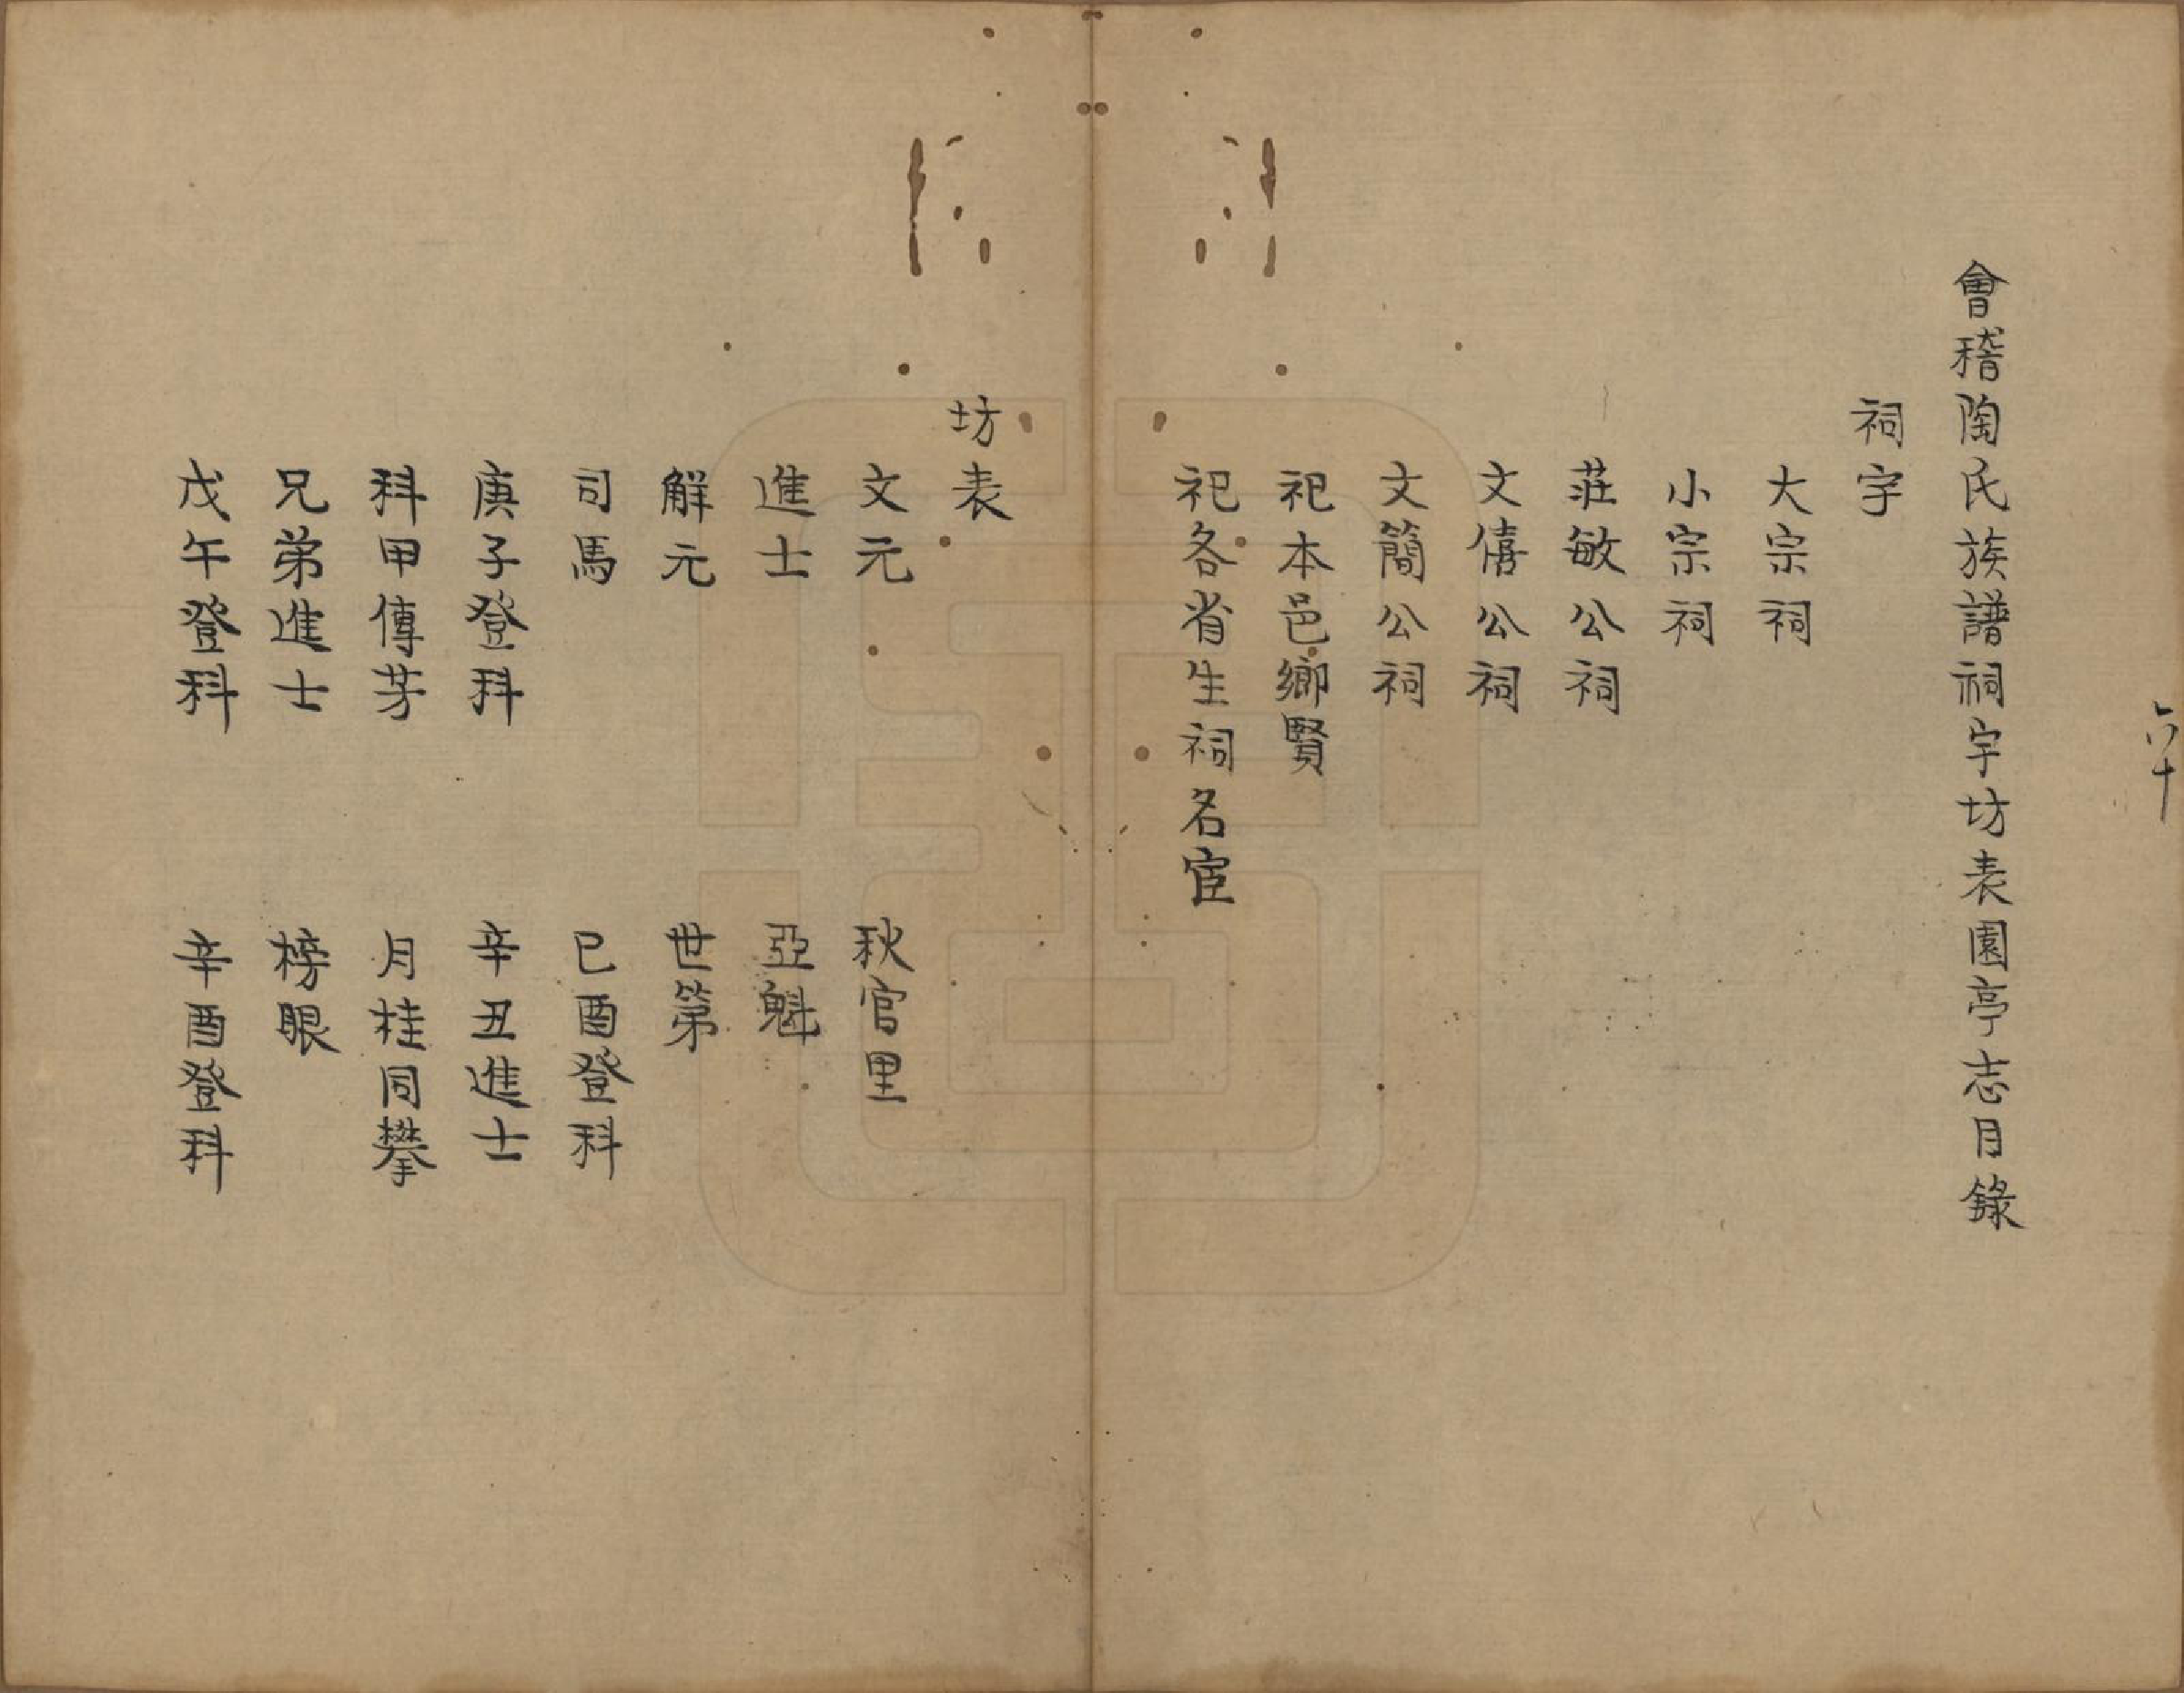 六十
會稽陶氏族譜祠宇坊表園亭志目錄
祠宇
大宗祠
小宗祠
莊敏公祠
文僖公祠
文簡公祠
祀本邑鄉賢
祀各省生祠名宦
坊表
文元 秋官里
進士 亞魁
解元 世第
司馬 己酉登科
庚子登科 辛丑進士
科甲傳芳 月桂同攀
兄弟進士 榜眼
戊午登科 辛酉登科